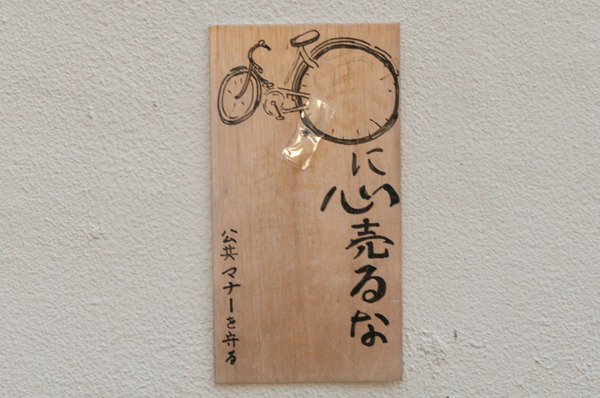 に心売るな
公共マナーを守る